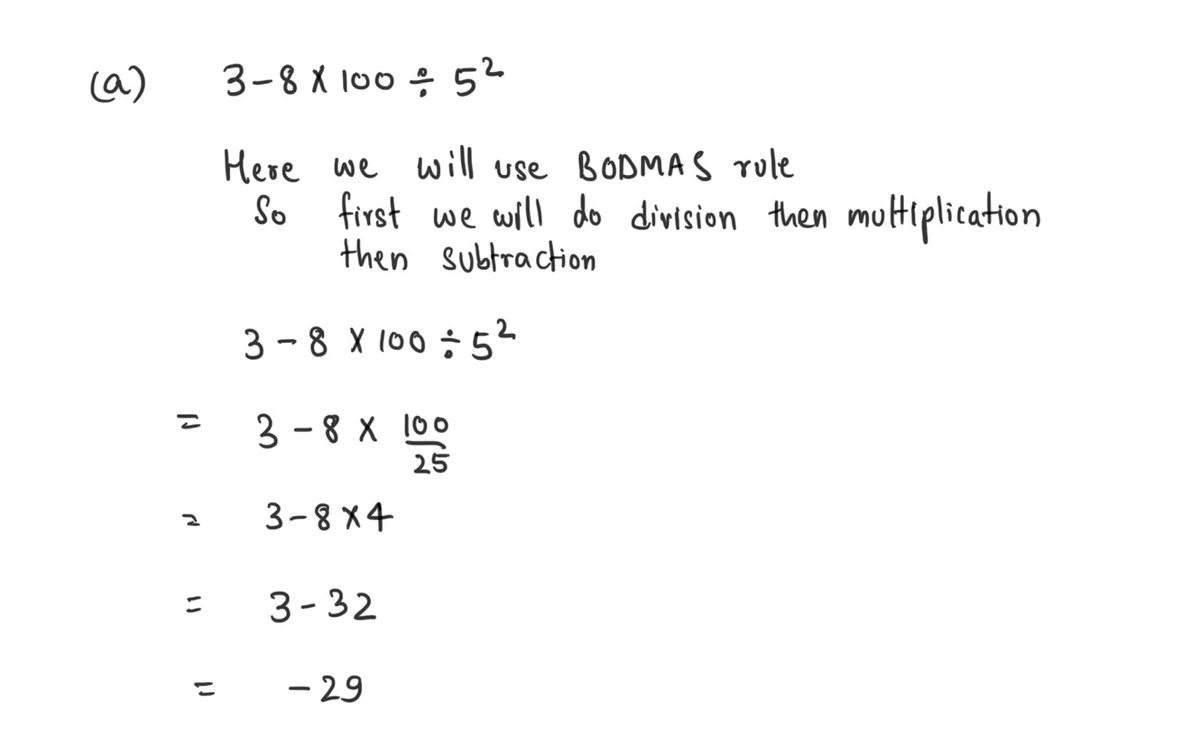 (a) 3-8 X 100 ÷ 5²
Here we will use BODMAS rule
So first we will do division then multiplication
then subtraction
3 - 8 X 100 ÷ 5²
= 3 - 8 X 100/25
= 3-8 X 4
= 3 - 32
= - 29